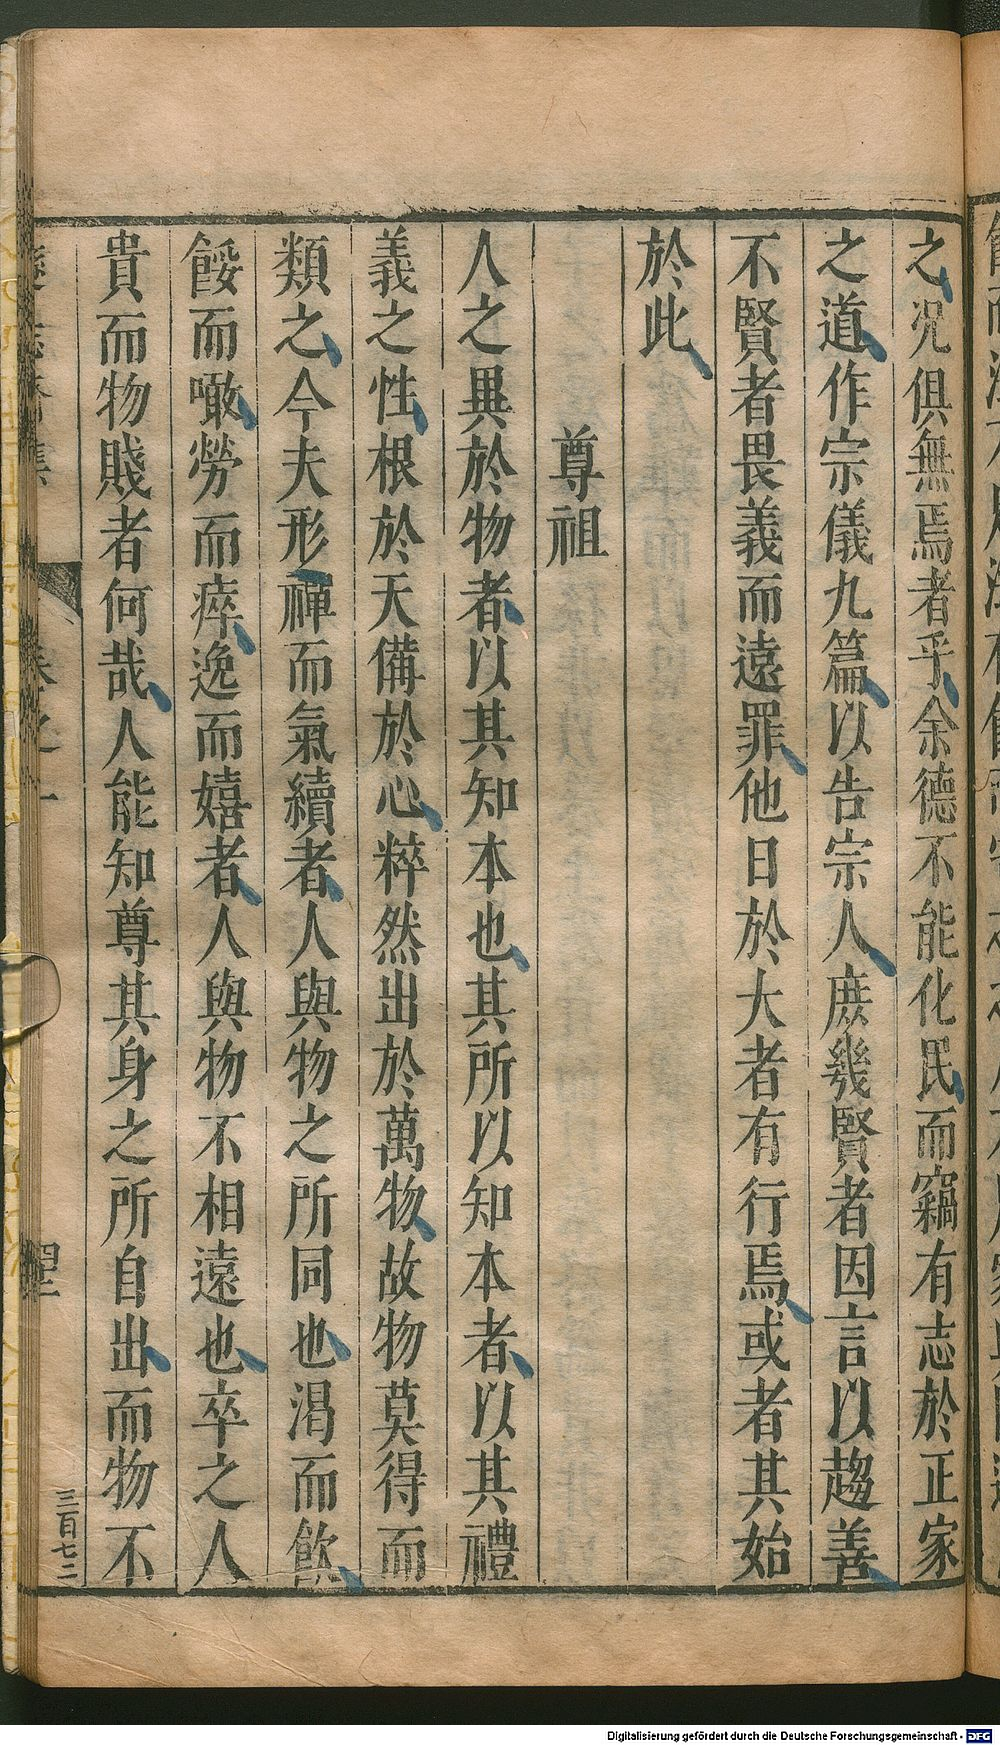 之況俱無焉者乎余德不能化民而竊有志於正家
之道作宗儀九篇以告宗人庶幾賢者因言以趨善
不賢者畏義而遠罪他日於大者有行焉或者其始
於此
尊祖
人之異於物者以其知本也其所以知本者以其禮
義之性根於天備於心粹然出於萬物故物莫得而
類之今夫形禪而氣續者人與物之所同也渴而飲
餒而噉勞而瘁逸而嬉者人與物不相遠也卒之人
貴而物賤者何哉人能知尊其身之所自出而物不
三百七二
Digitalisierung gefördert durch die Deutsche Forschungsgemeinschaft - DFG